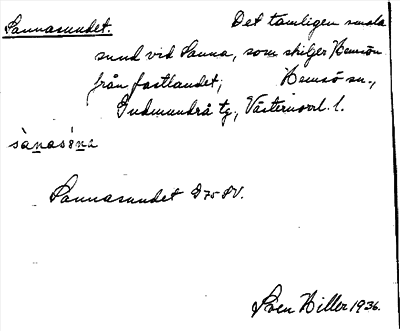 Sannasundet. Det tämligen smala
sund vid Sanna, som skiljer Hemsön
från fastlandet; Hemsö sn.,
Gudmundrå tg., Västernorrl. l.
Sannasundet D 75 SV.
Sven Hiller 1936.